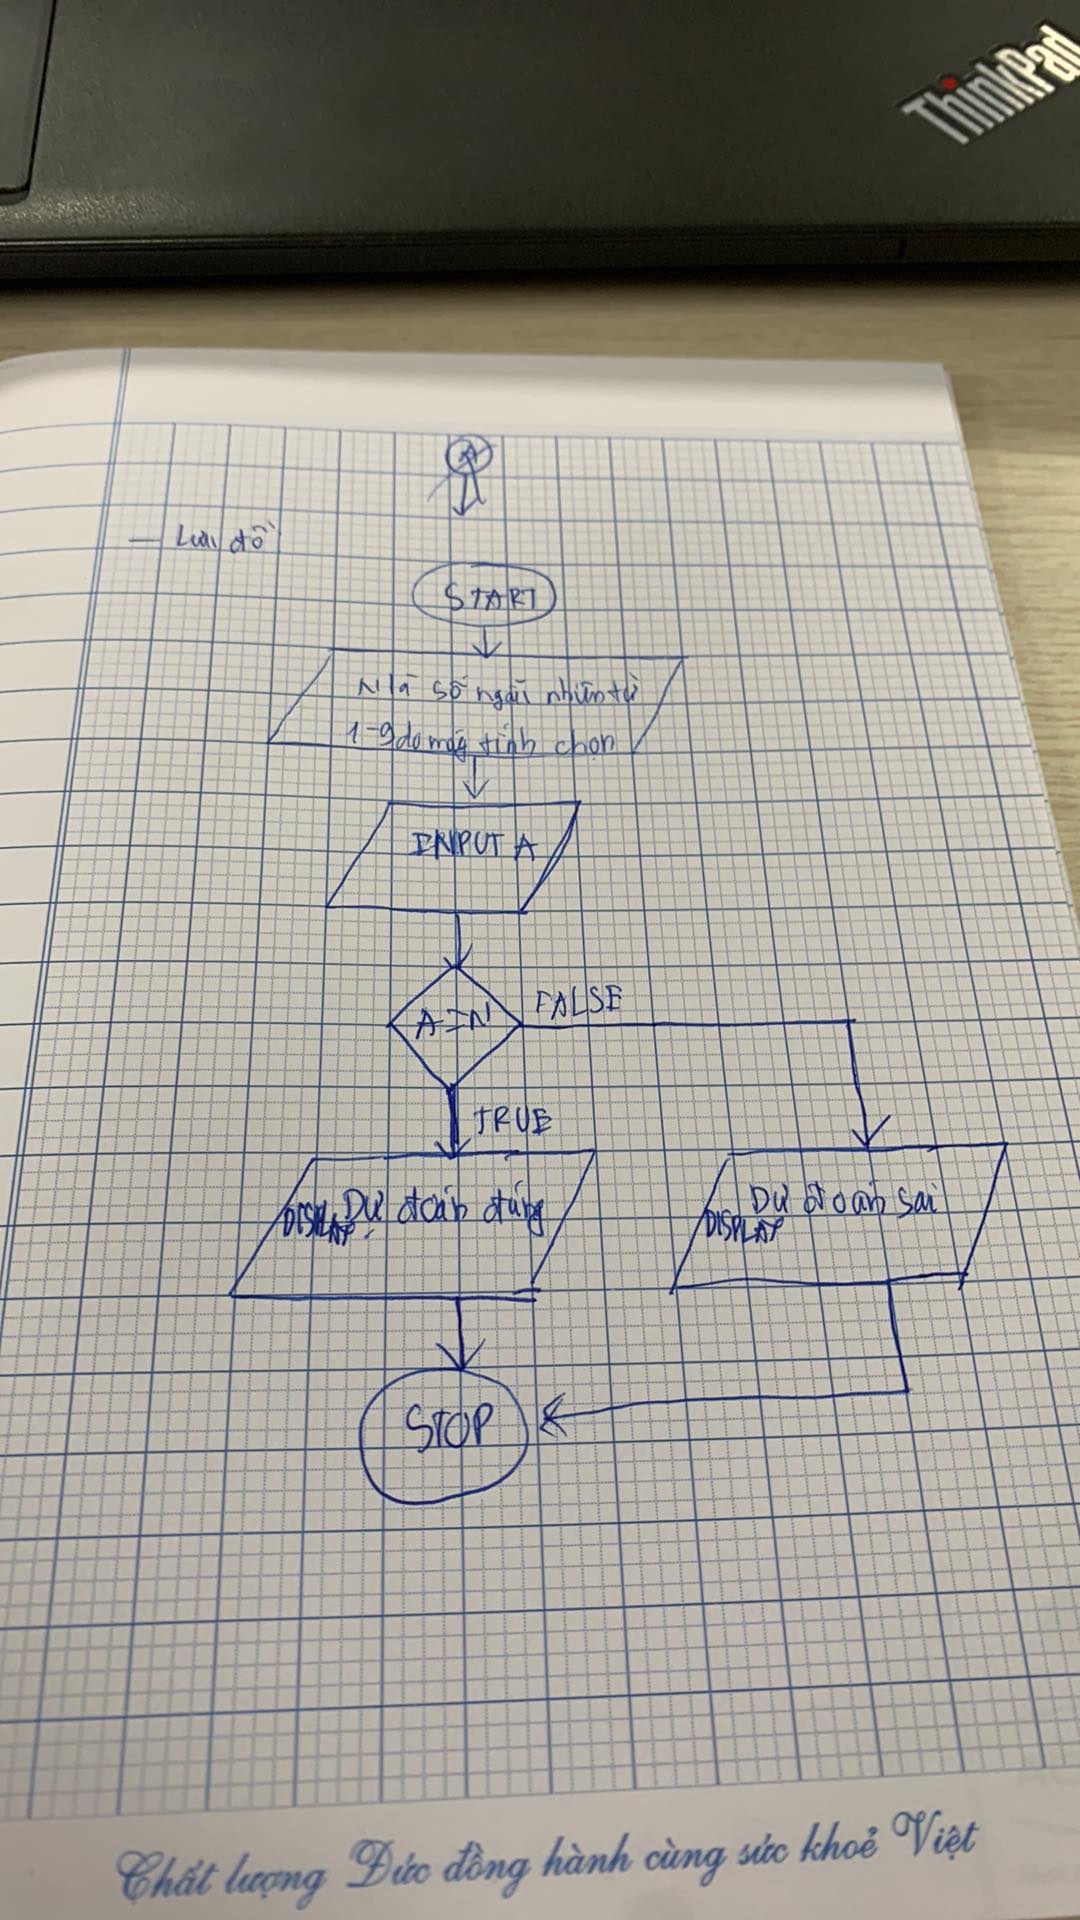 ThinkPad
A
- Lưu đồ
START
N là số ngẫu nhiên từ
1-9 do máy tính chọn
INPUT A
A = N
FALSE
TRUE
DISPLAY: Dự đoán đúng
DISPLAY Dự đoán sai
STOP
Chất lượng Đức đồng hành cùng sức khoẻ Việt